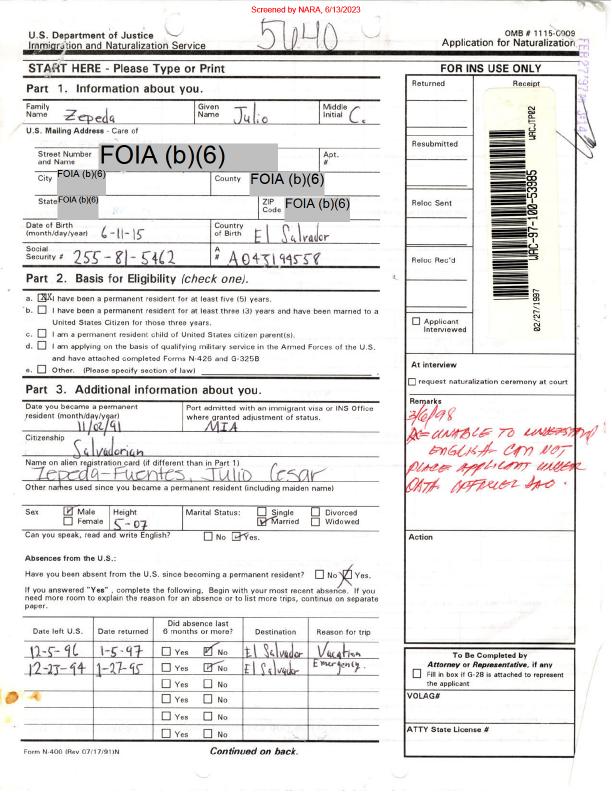 Screened by NARA, 6/13/2023
U.S. Department of Justice
Immigration and Naturalization Service
5640
OMB # 1115-0009
Application for Naturalization
START HERE - Please Type or Print
Part 1. Information about you.
Family Name Zepeda Given Name Julio Middle Initial C.
U.S. Mailing Address - Care of
Street Number and Name FOIA (b)(6) Apt. #
City FOIA (b)(6) County FOIA (b)(6)
State FOIA (b)(6) ZIP Code FOIA (b)(6)
Date of Birth (month/day/year) 6-11-15 Country of Birth El Salvador
Social Security # 255-81-5462 A # A043194558
Part 2. Basis for Eligibility (check one).
a. I have been a permanent resident for at least five (5) years.
b. I have been a permanent resident for at least three (3) years and have been married to a
United States Citizen for those three years.
c. I am a permanent resident child of United States citizen parent(s).
d. I am applying on the basis of qualifying military service in the Armed Forces of the U.S.
and have attached completed Forms N-426 and G-325B
e. Other. (Please specify section of law)
Part 3. Additional information about you.
Date you became a permanent resident (month/day/year) 11/02/91
Port admitted with an immigrant visa or INS Office where granted adjustment of status. MIA
Citizenship
Salvadorian
Name on alien registration card (if different than in Part 1)
Zepeda-Fuentes, Julio Cesar
Other names used since you became a permanent resident (including maiden name)
Sex Male Female Height 5-07 Marital Status: Single Married Divorced Widowed
Can you speak, read and write English? No Yes.
Absences from the U.S.:
Have you been absent from the U.S. since becoming a permanent resident? No Yes.
If you answered "Yes", complete the following, Begin with your most recent absence. If you
need more room to explain the reason for an absence or to list more trips, continue on separate
paper.
Date left U.S. Date returned Did absence last 6 months or more? Destination Reason for trip
12-5-96 1-5-97 Yes No El Salvador Vacation
12-23-94 1-27-95 Yes No El Salvador Emergency.
Yes No
Yes No
Yes No
Yes No
Form N-400 (Rev 07/17/91)N
Continued on back.
FOR INS USE ONLY
Returned
Receipt
Resubmitted
Reloc Sent
Reloc Rec'd
WAC-97-100-53985
WRCJTP02
02/27/1997
Applicant Interviewed
At interview
request naturalization ceremony at court
Remarks
3/6/98
UNABLE TO UNDERSTAND
ENGLISH CAN NOT
PLACE APPLICANT UNDER
OATH
Action
To Be Completed by
Attorney or Representative, if any
Fill in box if G-28 is attached to represent
the applicant
VOLAG#
ATTY State License #